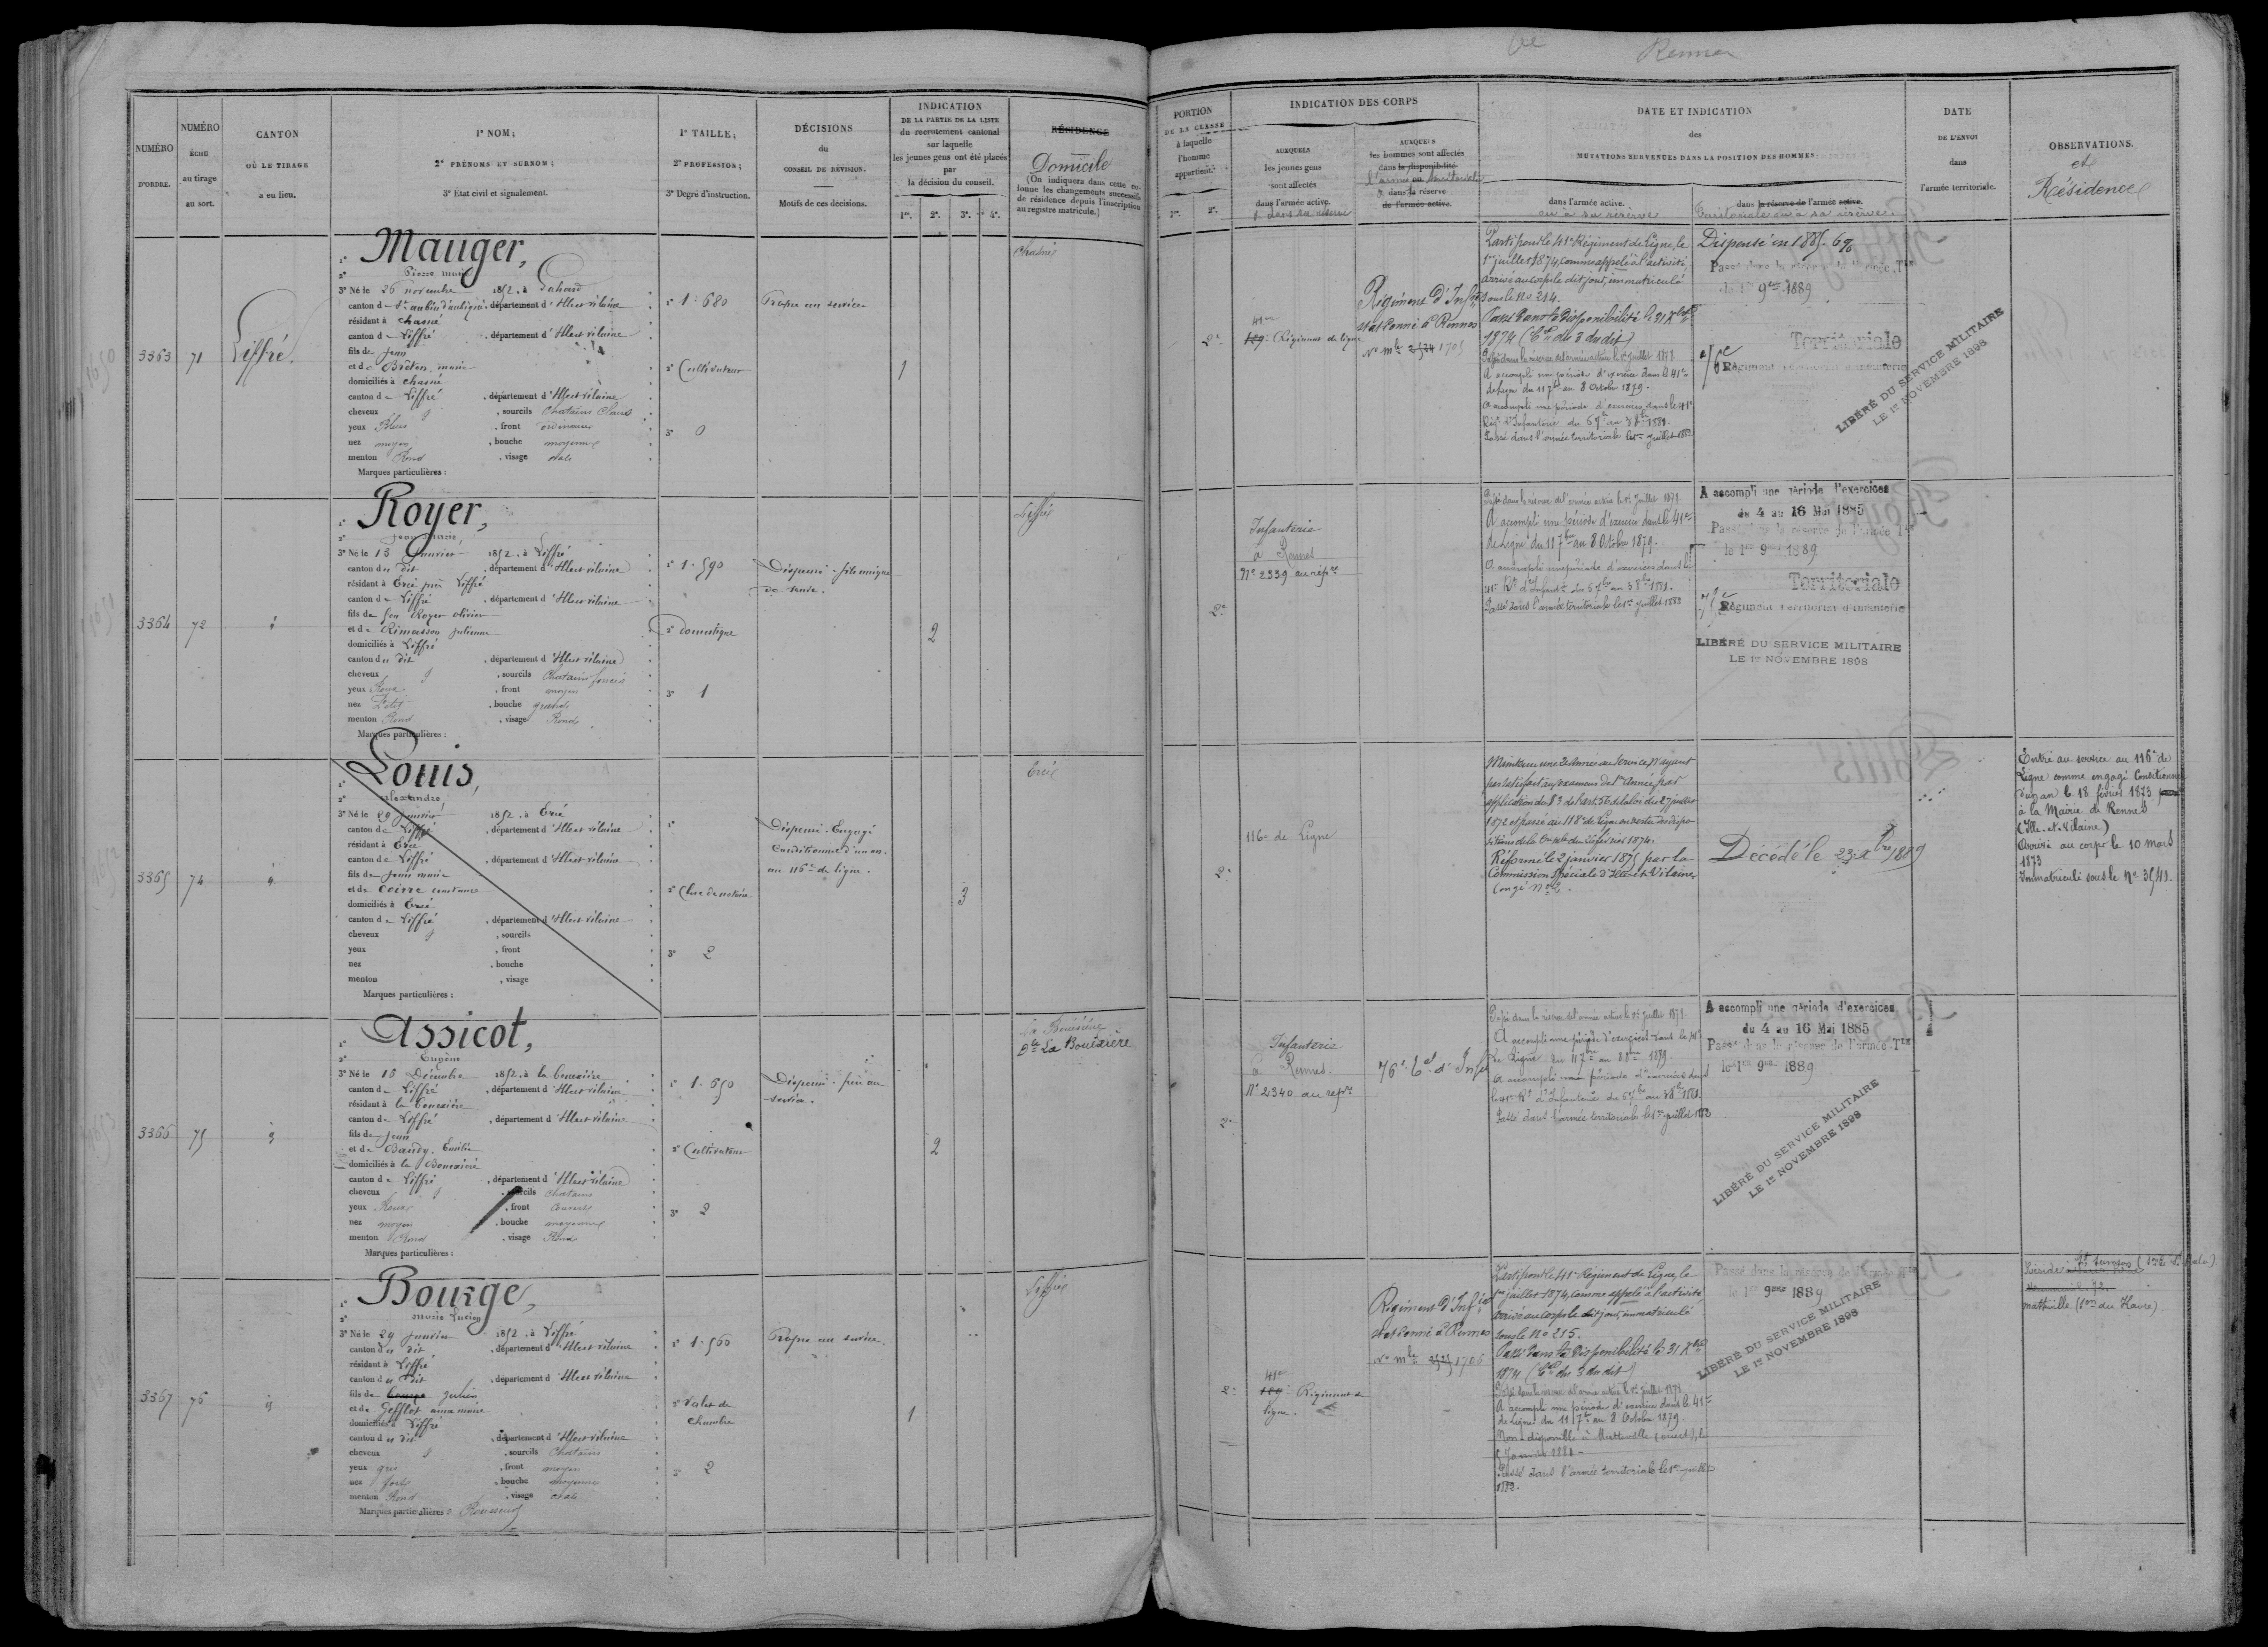 Rennes
NUMÉRO
D'ORDRE.
NUMÉRO
ÉCHU
au tirage
au sort.
CANTON
OÙ LE TIRAGE
a eu lieu.
1º NOM;
2º PRÉNOMS ET SURNOM;
3º État civil et signalement.
1º TAILLE;
2º PROFESSION;
3º Degré d'instruction.
DÉCISIONS
du
CONSEIL DE RÉVISION.
Motifs de ces décisions.
INDICATION
DE LA PARTIE DE LA LISTE
du recrutement cantonal
sur laquelle
les jeunes gens ont été placés
par
la décision du conseil.
1re. 2e. 3e. 4e.
RÉSIDENCE
Domicile
(On indiquera dans cette co-
lonne les changements successifs
de résidence depuis l'inscription
au registre matricule.)
PORTION
DE LA CLASSE
à laquelle
l'homme
appartient.
1re. 2e.
INDICATION DES CORPS
AUXQUELS
les jeunes gens
sont affectés
dans l'armée active.
& dans sa réserve
AUXQUELS
les hommes sont affectés
dans la disponibilité
l'armée ou territoriale
& dans la réserve
de l'armée active.
DATE ET INDICATION
des
MUTATIONS SURVENUES DANS LA POSITION DES HOMMES
dans l'armée active.
ou à sa réserve
dans la réserve de l'armée active.
Territoriale ou à sa réserve.
DATE
DE L'ENVOI
dans
l'armée territoriale.
OBSERVATIONS.
et
Résidence
3363
71
Liffré.
1º Mauger,
2º Pierre marie
3º Né le 26 novembre 1852, à Gahard
canton de St aubin d'aubigné, département d'Ille et vilaine
résidant à chasné
canton de Liffré, département d'Ille et vilaine
fils de Jean
et de Breton, marie
domiciliés à chasné
canton de Liffré, département d'Ille et vilaine
cheveux &, sourcils Chatains Clairs
yeux Bleus, front ordinaire
nez moyen, bouche moyenne
menton Rond, visage ovale
Marques particulières :
1º 1.680
2º Cultivateur
3º 0
Propre au service
1
Chasné
2e
41me
129e Régiment de ligne
Régiment d'Infie
stationné à Rennes
No mle 2534 1705
Parti pour le 41e Régiment de Ligne, le
1er juillet 1874, comme appelé à l'activité,
arrivé au corps le dit jour, immatriculé
sous le No 214.
Passé dans la Disponibilité le 31 Xbre
1874 (Cre du 3 du dit)
Passé dans la réserve de l'armée active le 1er juillet 1878
A accompli une période d'exercice dans le 41me
de Ligne du 11 7bre au 8 Octobre 1879.
A accompli une période d'exercices dans le 41e
Régt d'Infanterie du 6 7bre au 3 8bre 1881.
Passé dans l'armée territoriale le 1er juillet 1883
Dispensé en 1885. 6%
Passé dans la réserve de l'armée Tle
le 1er 9bre 1889
Territoriale
76e Régiment territorial d'infanterie
LIBÉRÉ DU SERVICE MILITAIRE
LE 1er NOVEMBRE 1898
3364
72
1º Royer,
2º Jean Marie,
3º Né le 15 Janvier 1852, à Liffré
canton du dit, département d'Ille et vilaine
résidant à Ercé près Liffré
canton de Liffré, département d'Ille et vilaine
fils de feu Royer olivier
et de Rimasson Julienne
domiciliés à Liffré
canton du dit, département d'Ille et vilaine
cheveux &, sourcils Chatains foncés
yeux Roux, front moyen
nez Petit, bouche grande
menton Rond, visage Rond
Marques particulières :
1º 1.590
2º Domestique
3º 1
Dispensé - fils unique
de veuve.
2
Liffré
2e
Infanterie
à Rennes
No 2339 au répre
Passé dans la réserve de l'armée active le 1er Juillet 1878
A accompli une période d'exercice dans le 41me
de Ligne du 11 7bre au 8 Octobre 1879.
A accompli une période d'exercices dans le
41e Rt d'Infantie du 6 7bre au 3 8bre 1881.
Passé dans l'armée territoriale le 1er juillet 1883
A accompli une période d'exercices
du 4 au 16 Mai 1885
Passé dans la réserve de l'armée Tle
le 1er 9bre 1889
Territoriale
Régiment territorial d'infanterie
LIBÉRÉ DU SERVICE MILITAIRE
LE 1er NOVEMBRE 1898
3365
74
1º Louis,
2º alexandre,
3º Né le 29 janvier 1852, à Ercé
canton de Liffré, département d'Ille et vilaine
résidant à Ercé
canton de Liffré, département d'Ille et vilaine
fils de Jean marie
et de Coirre constance
domiciliés à Ercé
canton de Liffré, département d'Ille et vilaine
cheveux &, sourcils
yeux, front
nez, bouche
menton, visage
Marques particulières :
1º
2º Clerc de notaire
3º 2
Dispensé - Engagé
Conditionnel d'un an.
au 116e de ligne.
3
Ercé
2e
116e de Ligne
Maintenu une 2e Année au Service n'ayant
pas satisfait aux examens de 1re Année, par
application du § 3 de l'art. 56 de la loi du 27 juillet
1872 et passé au 118e de Ligne en vertu des dispo
sitions de la Don mle du 26 février 1874.
Réformé le 2 janvier 1875 par la
Commission Spéciale d'Ille et Vilaine,
Congé No 2.
Décédé le 23 Xbre 1889
Entré au service au 116e de
Ligne comme engagé Conditionnel
d'un an le 18 février 1873
à la Mairie de Rennes
(Ille-et-Vilaine)
Arrivé au corps le 10 mars
1873
Immatriculé sous le No 3541.
3366
75
1º Assicot,
2º Eugène
3º Né le 15 Décembre 1852, à la bouexière
canton de Liffré, département d'Ille et vilaine
résidant à la bouexière
canton de Liffré, département d'Ille et vilaine
fils de Jean
et de Baudy. Emilie
domiciliés à la Bouexière
canton de Liffré, département d'Ille et vilaine
cheveux &, sourcils Chatains
yeux Roux, front Couvert
nez moyen, bouche moyenne
menton Rond, visage Rond
Marques particulières :
1º 1.650
2º Cultivateur
3º 2
Dispensé - frère au
service.
2
La Bouëxière
Dle La Bouëxière
2e
Infanterie
à Rennes.
No 2340 au répre
76e Tal d'Infie
Passé dans la réserve de l'armée active le 1er juillet 1878
A accompli une période d'exercices dans le 41e
De Ligne du 11 7bre au 8 8bre 1879.
A accompli une période d'exercices dans
le 41e Rt d'Infanterie du 6 7bre au 3 8bre 1881.
Passé dans l'armée territoriale le 1er juillet 1883
A accompli une période d'exercices
du 4 au 16 Mai 1885
Passé dans la réserve de l'armée Tle
le 1er 9bre 1889
LIBÉRÉ DU SERVICE MILITAIRE
LE 1er NOVEMBRE 1898
3367
76
1º Bourge,
2º marie Lucien
3º Né le 29 Janvier 1852, à Liffré
canton du dit, département d'Ille et vilaine
résidant à Liffré
canton du dit, département d'Ille et vilaine
fils de Bourge Julien
et de Gefflot anna marie
domiciliés à Liffré
canton du dit, département d'Ille et vilaine
cheveux &, sourcils Chatains
yeux gris, front moyen
nez fort, bouche moyenne
menton Rond, visage ovale
Marques particulières : Rousseurs
1º 1.560
2º Valet de
chambre
3º 2
Propre au service
1
Liffré
2e
41me
129e Régiment de
ligne.
Régiment d'Infie
stationné à Rennes
No mle 1706
Parti pour le 41e Régiment de Ligne, le
1er juillet 1874, comme appelé à l'activité
arrivé au corps le dit jour, immatriculé
sous le No 215.
Passé dans la Disponibilité le 31 Xbre
1874 (Cre du 3 du dit)
Passé dans la réserve de l'armée active le 1er Juillet 1878
A accompli une période d'exercice dans le 41me
de Ligne du 11 7bre au 8 Octobre 1879.
Non-disponible à Motteville (ouest), le
Janvier 1881
Passé dans l'armée territoriale le 1er juillet
1883.
Passé dans la réserve de l'armée Tle
le 1er 9bre 1889
LIBÉRÉ DU SERVICE MILITAIRE
LE 1er NOVEMBRE 1898
Réside
(Son du Havre)